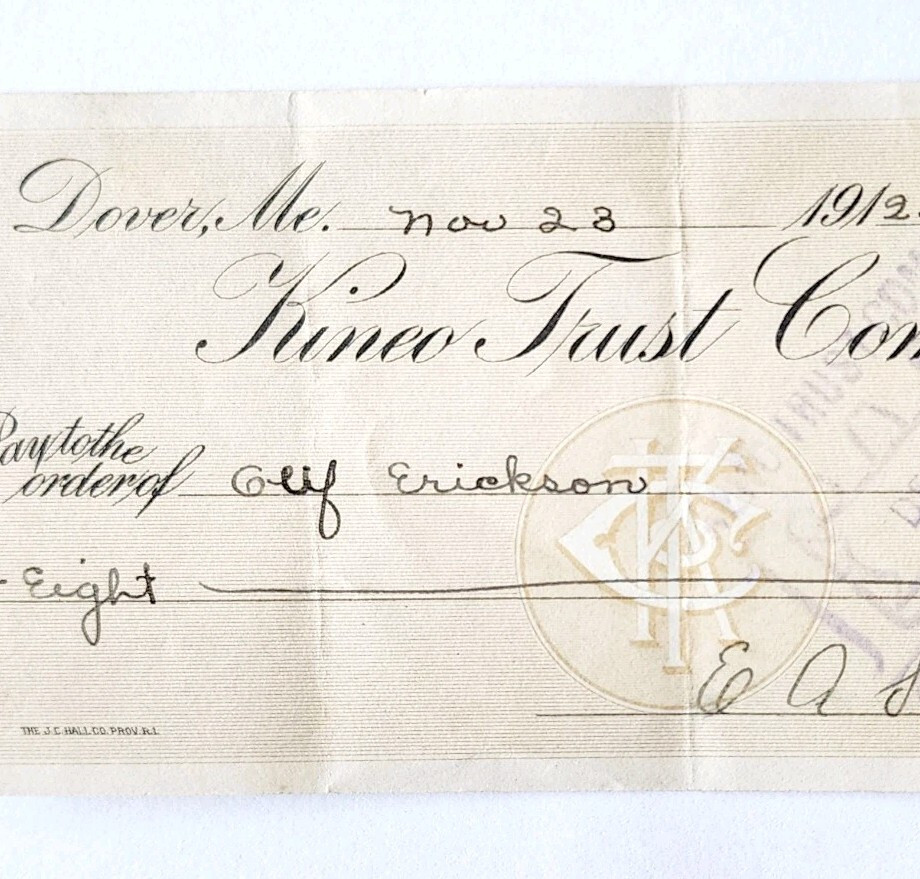 Dover, Me. Nov 23 1912
Kineo Trust Com
Pay to the order of Oluf Erickson
Eight
E A S
THE J.C. HALL CO. PROV. R.I.